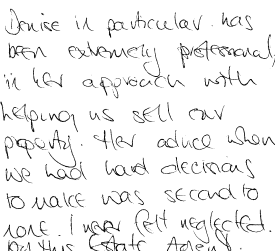 Denise in particular has
been extremely professional,
in her approach with
helping us sell our
property. Her advice when
we had hard decisions
to make was second to
none. I never felt neglected.
by this Estate Agent.